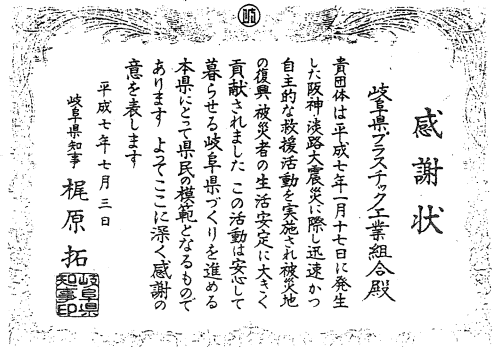 岐
感謝状
岐阜県プラスチック工業組合殿
貴団体は平成七年一月十七日に発生
した阪神・淡路大震災に際し迅速かつ
自主的な救援活動を実施され被災地
の復興・被災者の生活安定に大きく
貢献されました この活動は安心して
暮らせる岐阜県づくりを進める
本県にとって県民の模範となるもので
あります よってここに深く感謝の
意を表します
平成七年七月三日
岐阜県知事 梶原拓
岐阜県
知事印